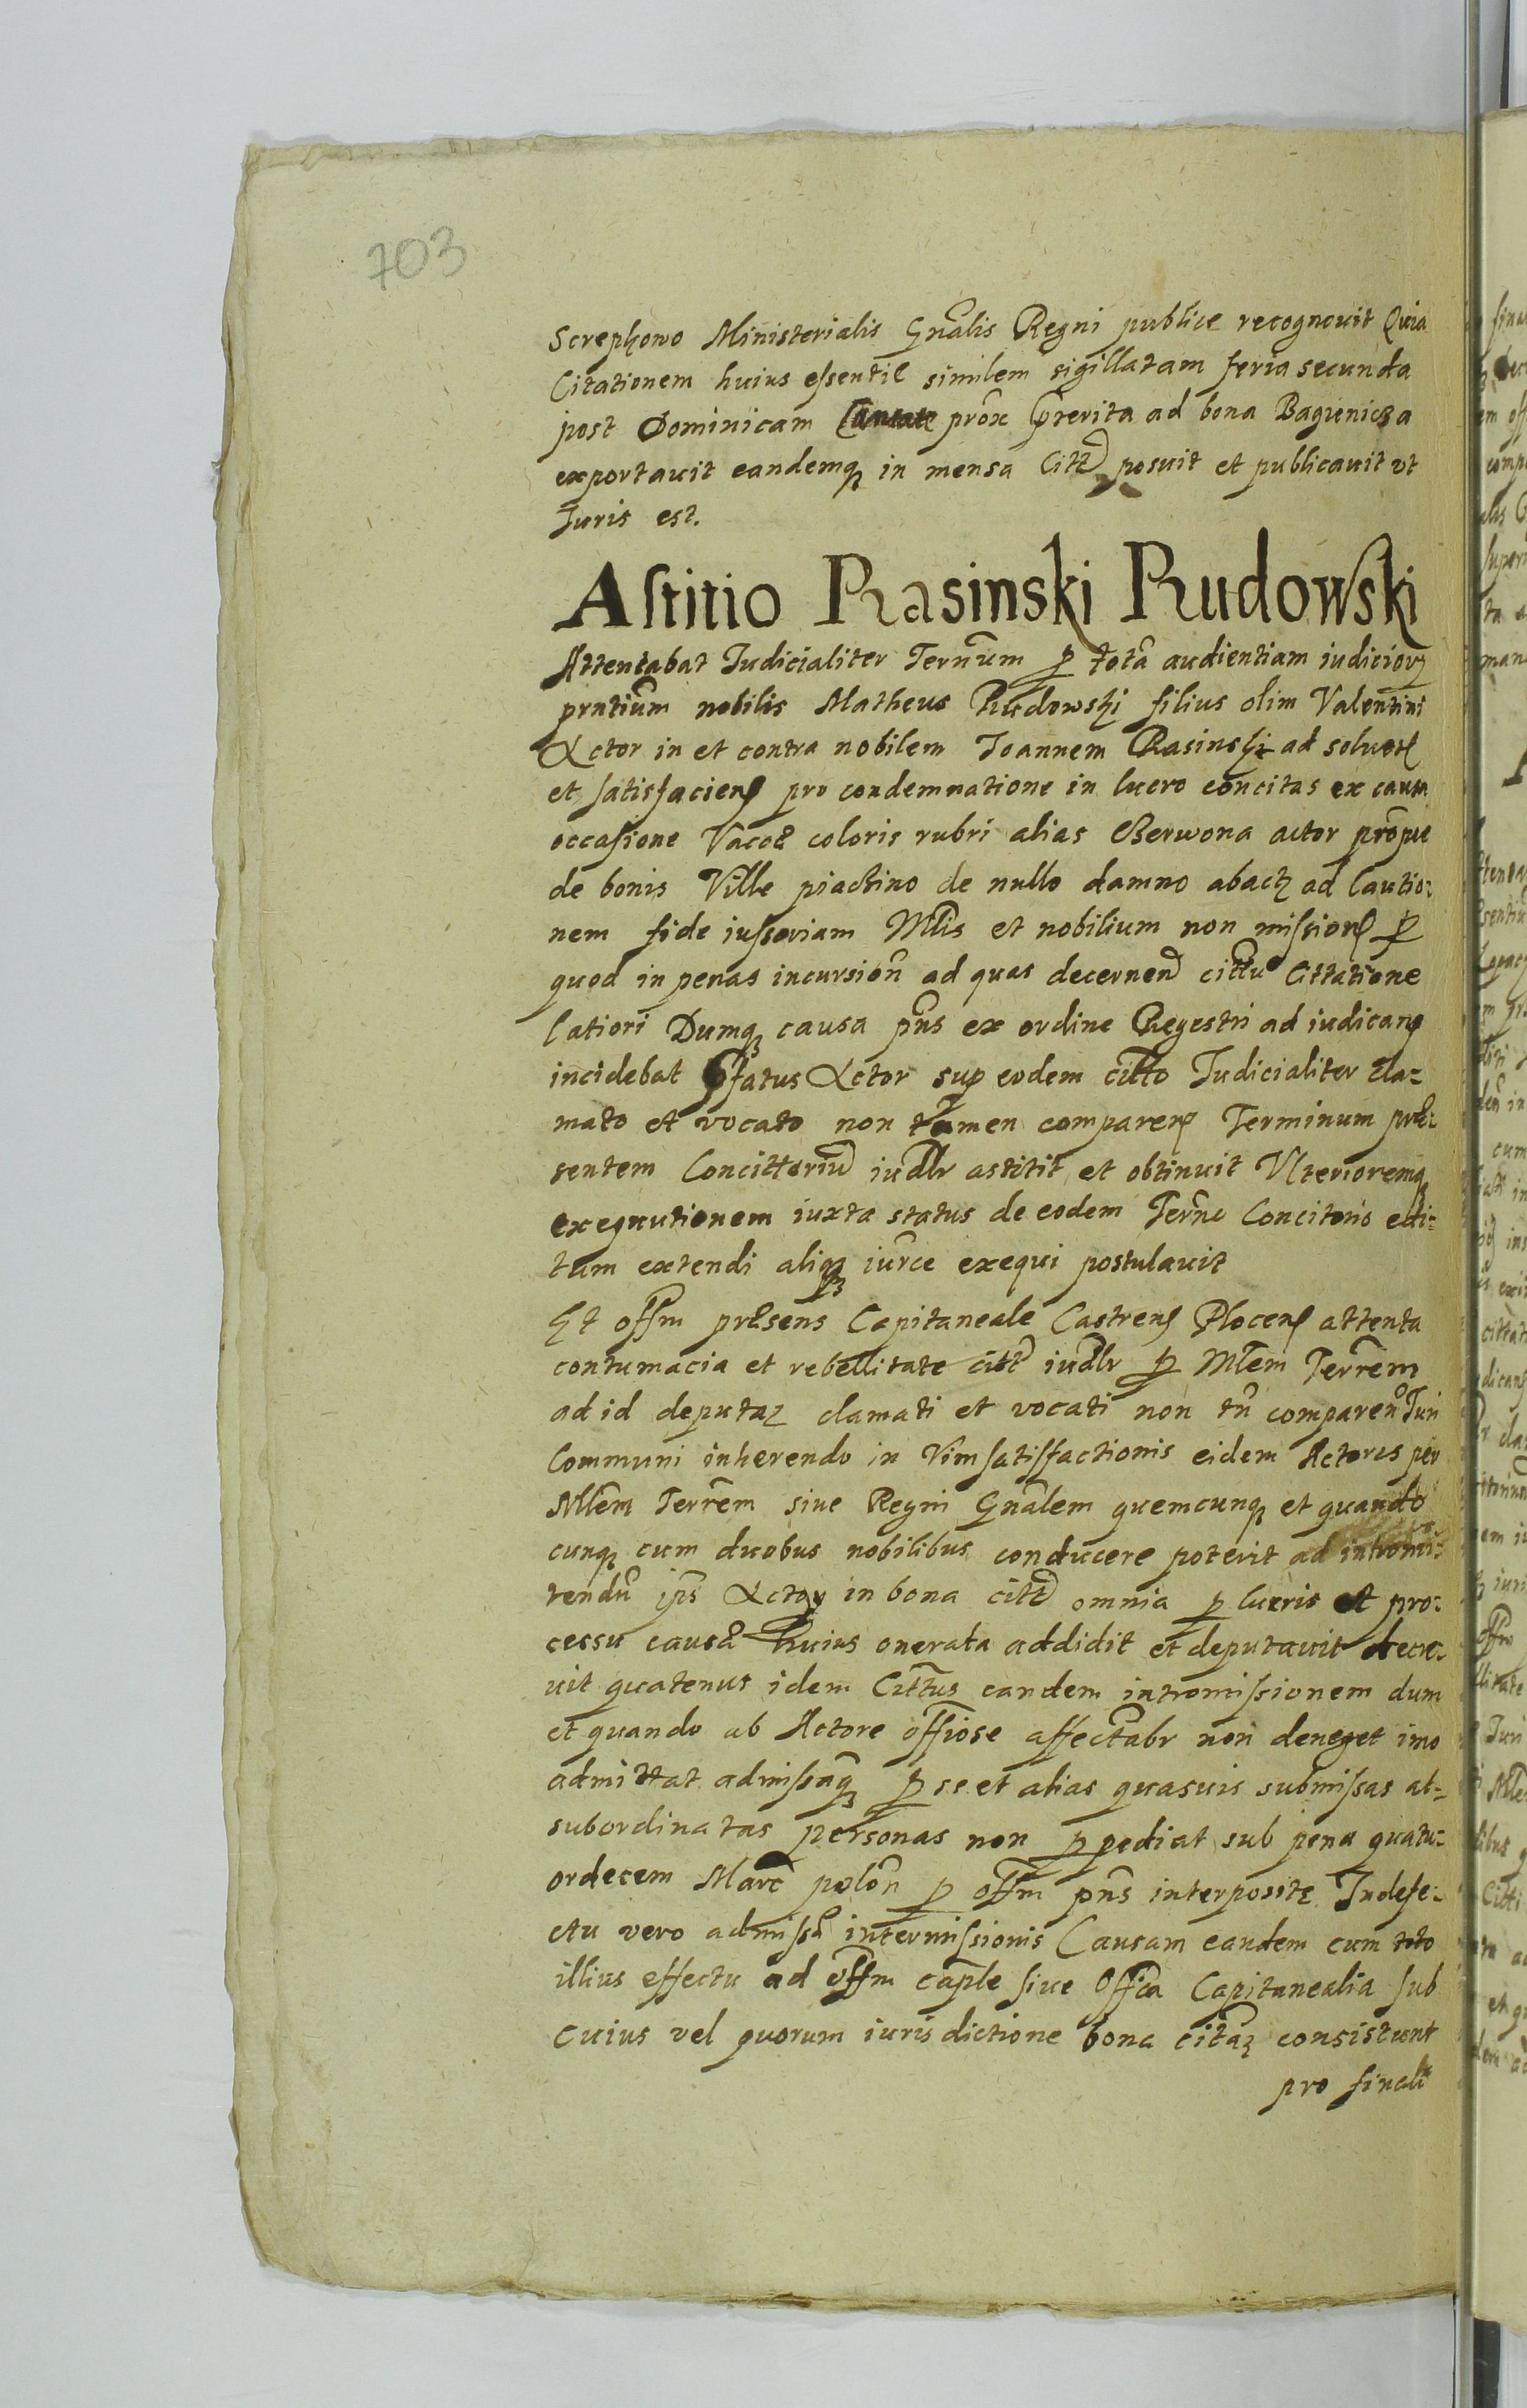 703
Screphowo Ministerialis Gnalis Regni publice recognouit Quia
Citationem huius essentie similem sigillatam feria secunda
post Dominicam Cantate prox prerita ad bona Bagienicza
exportauit eandemq in mensa Citti posuit et publicauit vt
Iuris est.
Astitio Rasinski Rudowski
Attentabat Iudicialiter Ternum p totã audientiam iudicior
prntium nobilis Matheus Rudowski filius olim Valentini
Actor in et contra nobilem Ioannem Rasinski ad soluen
et satisfacien pro condemnatione in lucro concitas ex causa
occasione Vacce coloris rubri alias Czerwona actor propue
de bonis Ville piactino de nullo damno abact ad Cautio-
nem fide iussoriam Mlis et nobilium non mission p
quod in penas incursion ad quas decernen cittus Cittatione
latiori Dumq causa pns ex ordine Regestri ad iudican
incidebat pfatus Actor sup eodem citto Iudicialiter cla-
mato et vocato non tamen comparen Terminum præ-
sentem Concittoriu iudlr astitit et obtinuit Vlterioremq
exequutionem iuxta status de eodem Terno Concitorio edi-
tum extendi aliqq iurce exequi postulauit
Et offm præsens Capitaneale Castren Plocen attenta
contumacia et rebellitate citti iudlr p Mlem Terrem
ad id deputat clamati et vocati non tn comparen Iuri
Communi inherendo in Vim satisfactionis eidem Actoris per
Mlem Terrem siue Regni Gnalem quemcunq et quando
cunq cum duobus nobilibus conducere poterit ad intromi-
tendu ips Actor in bona citti omnia p lucris et pro-
cessu causæ huius onerata addidit et deputauit decre-
uit quatenus idem Cittus eandem intromissionem dum
et quando ab Actore offiose affectabr non deneget imo
admittat admissaq p se et alias quasuis submissas at-
subordinatas personas non p pediat sub pena quatu-
ordecem Marc polon p offm pns interposite Indefe-
ctu vero admissæ intermissionis Causam eandem cum toto
illius effectu ad offm caple siue Officia Capitanealia sub
Cuius vel quorum iuris dictione bona citat consistunt
pro finali